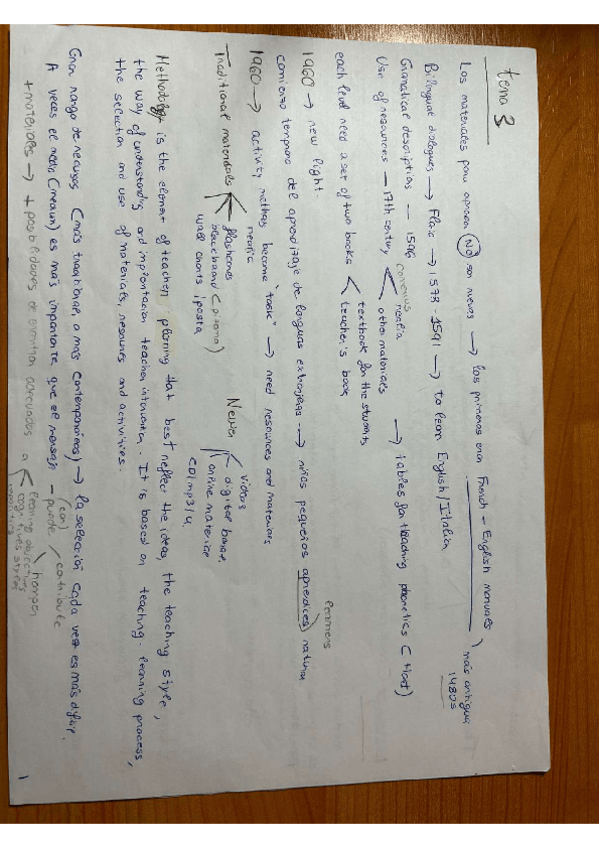 tema 3
Los materiales para aprender NO son nuevos → los primeros eran French - English manuales) más antigua 1480s
Bilingual dialogues → Florio → 1578 - 1591 → to learn English/Italian
Gramatical descriptions — 1586
Use of resources — 17th century < Comenius realia
other materiales → tables for teaching phonetics (Hart)
each level need a set of two books < textbook for the students
teacher's book
1960 → new light
comienzo temprano del aprendizaje de lenguas extranjeras → niños pequeños aprendices natural
learners
1960 → activity methods become "task" → need resources and materials
Traditional materials < realia
flashcards
blackboard (pizarra)
wall charts, posta
Newer < videos
digital board,
online material
CD/mp3/4
Methodology is the element of teachers planning that best reflect the ideas, the teaching style,
the way of understanding and teacher intervention. It is based on teaching-learning process,
the selection and use of materials, resources and activities.
Gran rango de recursos (más tradicional, o más contemporáneos) → la selección cada vez es más difícil.
A veces el medio (mean) es más importante que el mensaje — puede (can) < hamper
contribute
+ materiales → + posibilidades de adecuados a < learning objectives
cognitives styles
1